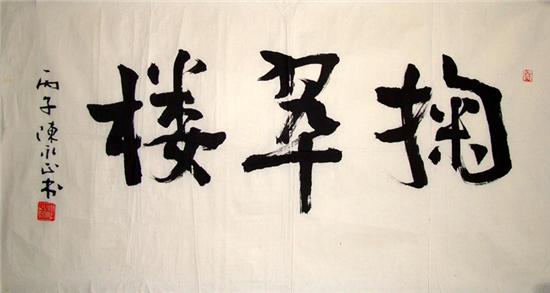 掬翠楼
丙子陳永正书